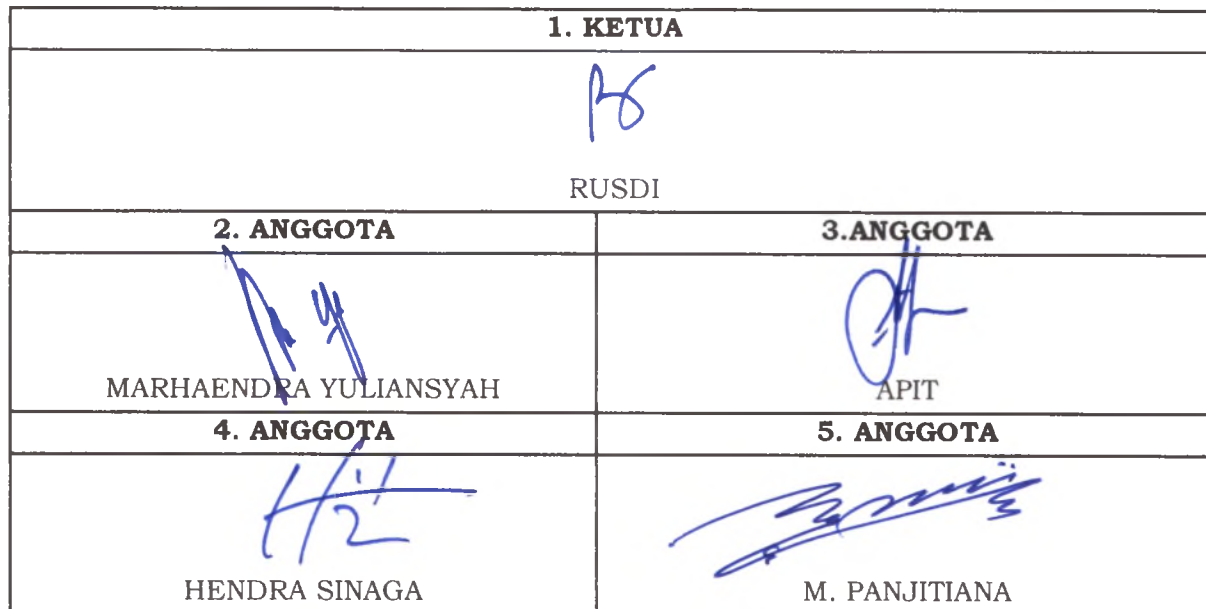 1. KETUA
RUSDI
2. ANGGOTA
3.ANGGOTA
MARHAENDRA YULIANSYAH
APIT
4. ANGGOTA
5. ANGGOTA
HENDRA SINAGA
M. PANJITIANA